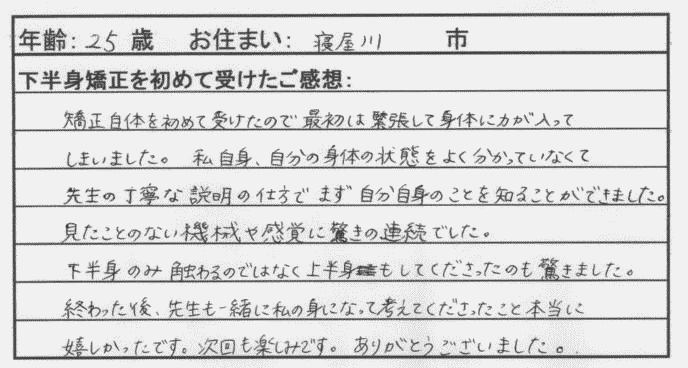 年齢: 25 歳 お住まい: 寝屋川 市
下半身矯正を初めて受けたご感想:
矯正自体を初めて受けたので最初は緊張して身体に力が入って
しまいました。 私自身、自分の身体の状態をよく分かっていなくて
先生の丁寧な説明の仕方でまず自分自身のことを知ることができました。
見たことのない機械や感覚に驚きの連続でした。
下半身のみ触わるのではなく上半身もしてくださったのも驚きました。
終わった後、先生も一緒に私の身になって考えてくださったこと本当に
嬉しかったです。次回も楽しみです。ありがとうございました。